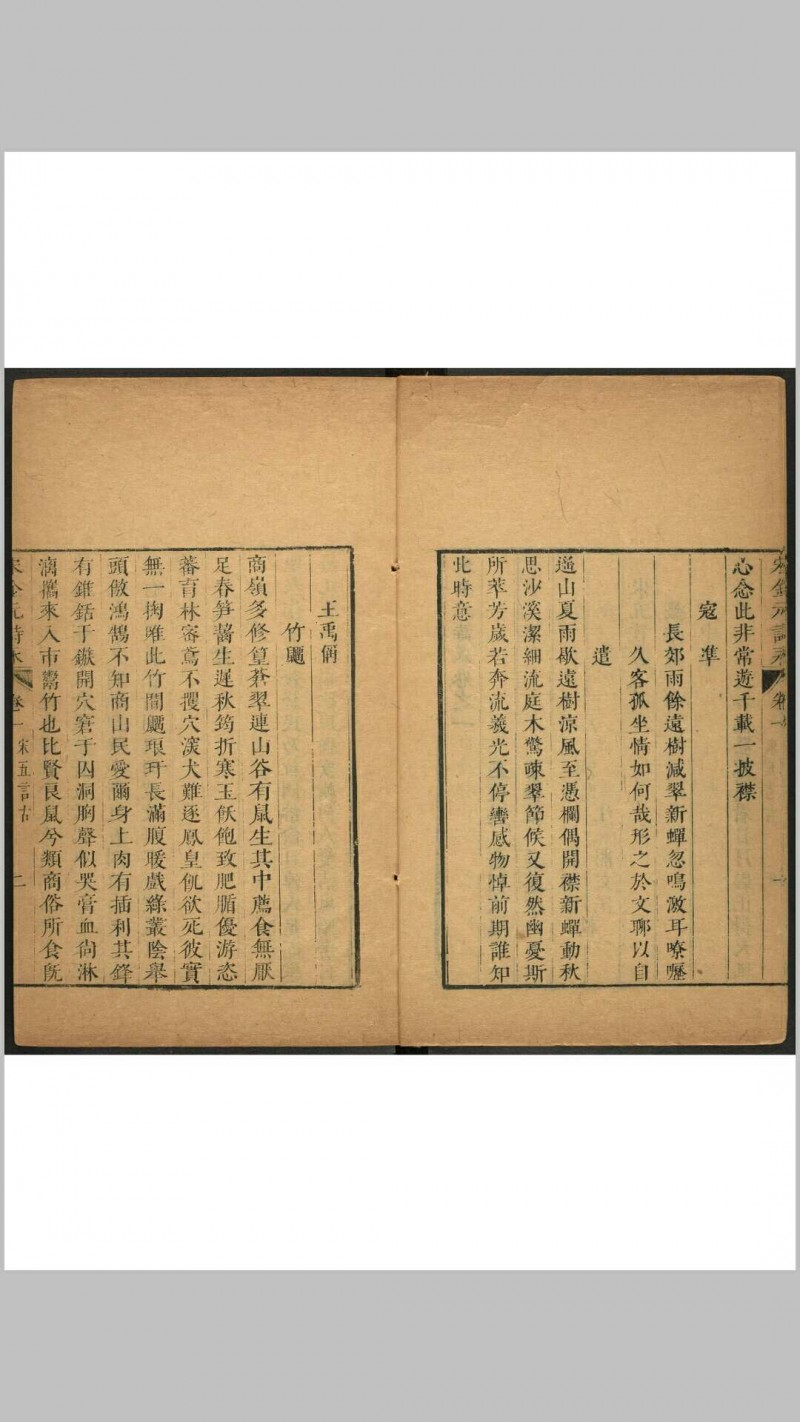 宋金元詩永 卷一
心念此非常遊千載一披襟
寇準
長郊雨餘遠樹減翠新蟬忽鳴激耳嘹嚦
久客孤坐情如何哉形之於文聊以自
遣
遥山夏雨歇遠樹涼風至憑欄偶開襟新蟬動秋
思沙溪潔細流庭木驚疎翠節候又復然幽憂斯
所萃芳歲若奔流羲光不停轡感物悼前期誰知
此時意
王禹偁
竹䶉
商嶺多修篁蒼翠連山谷有鼠生其中薦食無厭
足春笋齧生遲秋筠折寒玉飫飽致肥腯優游恣
蕃育林密鳶不攫穴深犬難逐鳳皇飢欲死彼實
無一掬唯此竹間䶉琅玕長滿腹暖戲綠叢陰舉
頭傲鴻鵠不知商山民愛爾身上肉有插利其鋒
有錐銛于鏃開穴窘于囚洞胸聲似哭膏血尚淋
漓攜來入市鬻竹也比賢良鼠兮類商俗所食旣
宋金元詩永 卷一 宋五言古 二